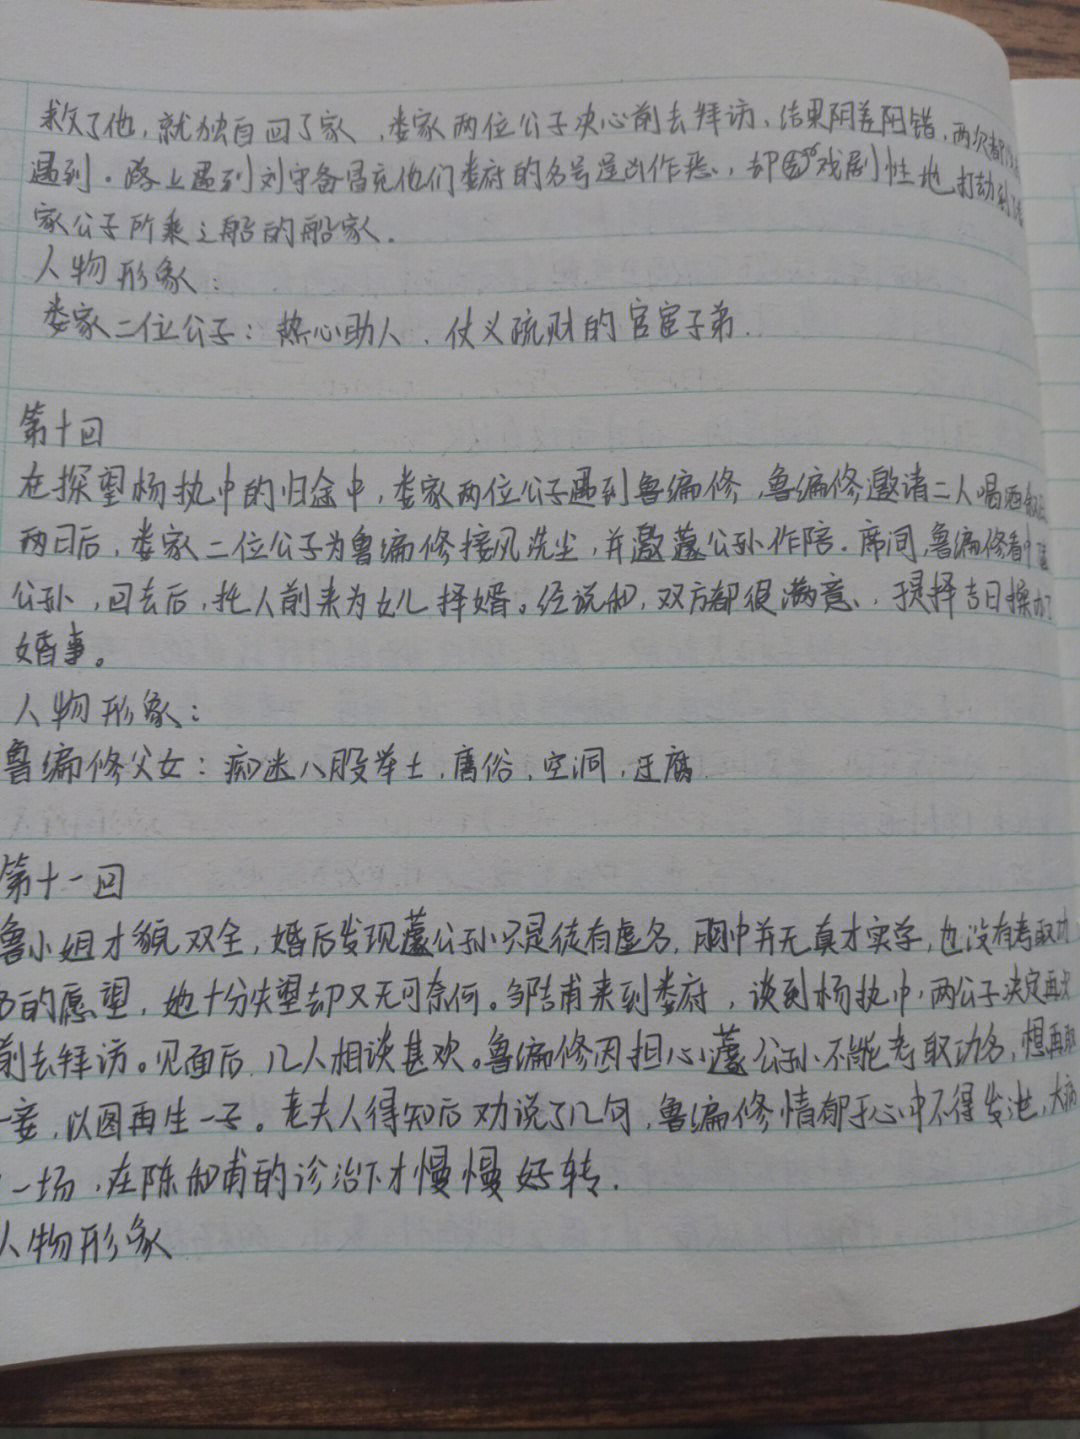 救了他，就独自回了家，娄家两位公子决心前去拜访，结果阴差阳错，两次都
遇到。路上遇到刘守备冒充他们娄府的名号逞凶作恶，却戏剧性地打劫到
家公子所乘之船的船家.
人物形象：
娄家二位公子：热心助人、仗义疏财的官宦子弟.
第十回
在探望杨执中的归途中，娄家两位公子遇到鲁编修，鲁编修邀请二人喝酒
两日后，娄家二位公子为鲁编修接风洗尘，并邀蘧公孙作陪．席间，鲁编修看中
公孙，回去后，托人前来为女儿择婿。经说和，双方都很满意，择吉日操办了
婚事。
人物形象：
鲁编修父女：痴迷八股举士，庸俗，空洞，迂腐.
第十一回
鲁小姐才貌双全，婚后发现蘧公孙只是徒有虚名，胸中并无真才实学，也没有考取功
名的愿望，她十分失望却又无可奈何。邹吉甫来到娄府，谈到杨执中，两公子决定再次
前去拜访。见面后，几人相谈甚欢。鲁编修因担心蘧公孙不能考取功名，想再取
一妾，以图再生一子。老夫人得知后劝说了几句，鲁编修情郁于心中不得发泄，大病
一场，在陈和甫的诊治下才慢慢好转.
人物形象